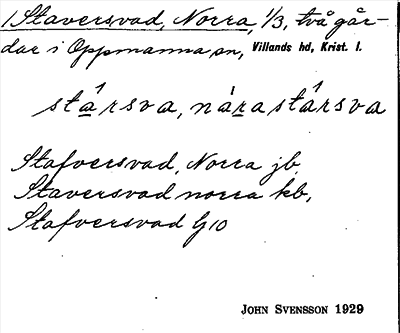 1 Staversvad, Norra, 1/3, två går-
dar i Oppmanna sn, Villands hd, Krist. l.
stársva, nárastársva
Stafversvad, Norra jb,
Staversvad norra kb,
Stafversvad G10
JOHN SVENSSON 1929